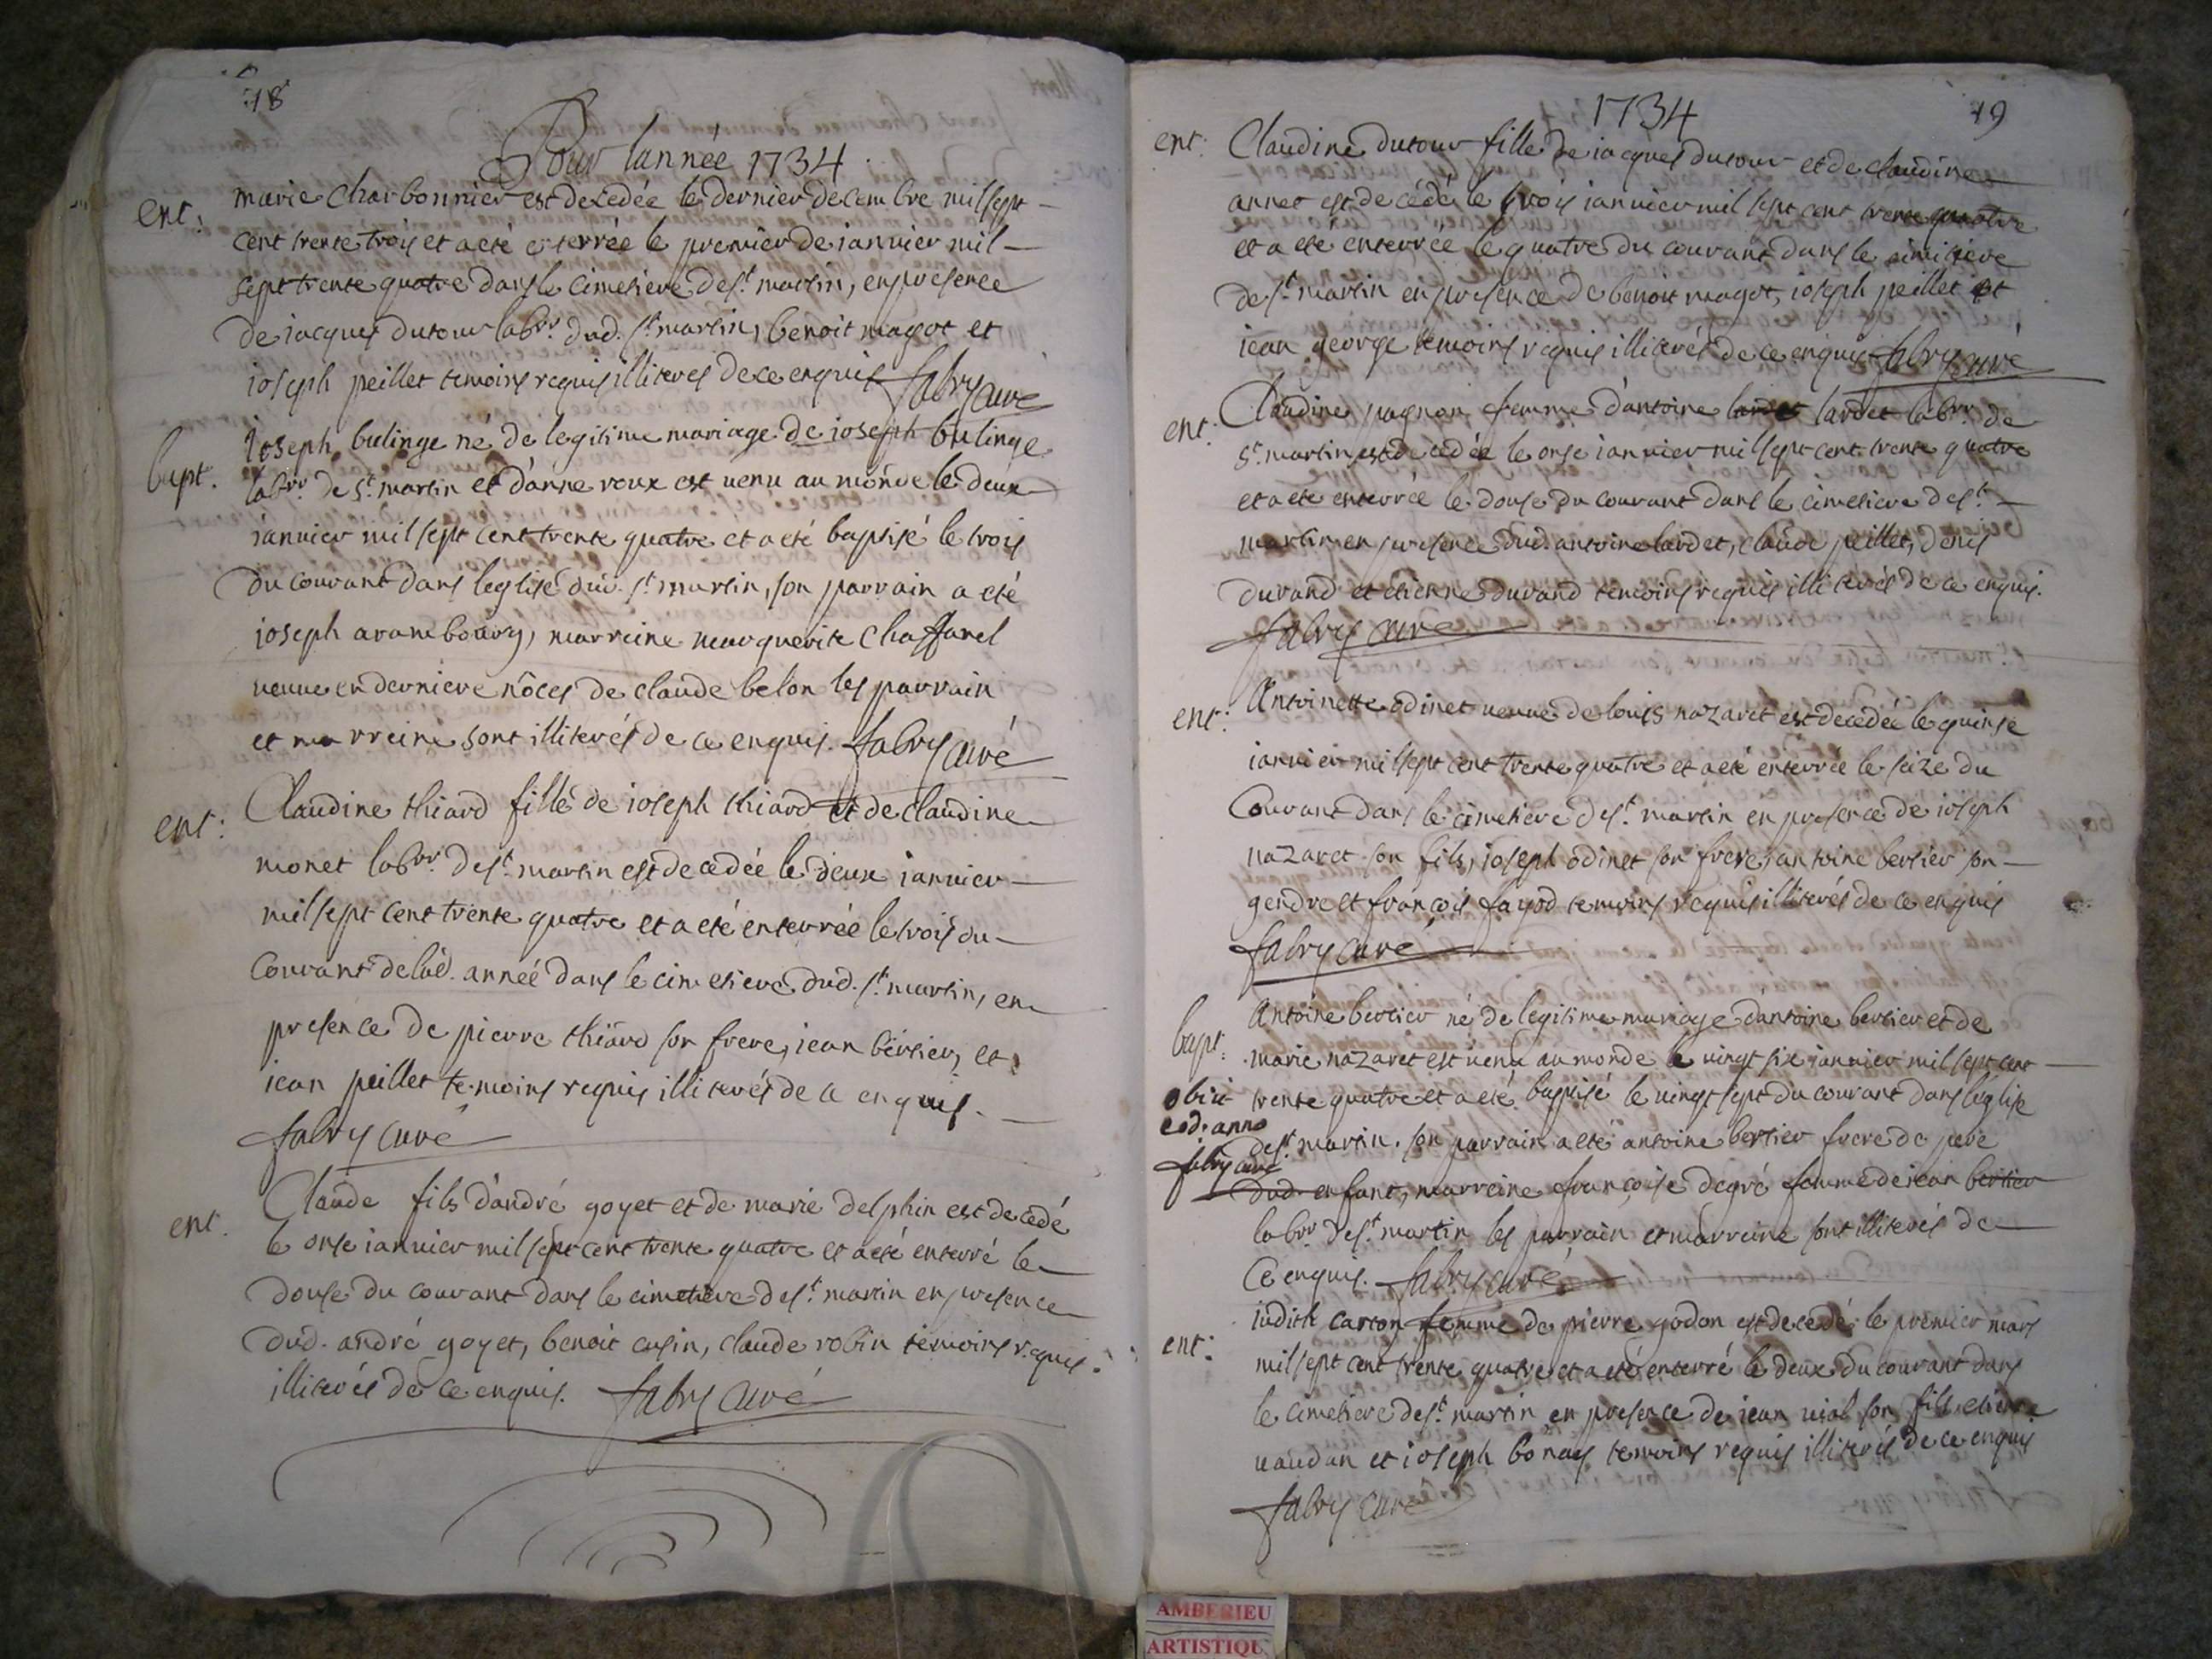 18
Pour lannée 1734
ent: marie Charbonnier est decedée le dernier decembre mil sept
cent trente trois et a eté enterrée le premier de ianvier mil
sept trente quatre dans le cimetiere de st. martin, en presence
de iacques dutour labr. dud. st. martin, benoit magot et
ioseph peillet temoins requis illiterés de ce enquis fabry curé
bapt. Ioseph bulinge né de legitime mariage de ioseph bulinge
labr. de st. martin et d'anne roux est venu au monde le deux
ianvier mil sept cent trente quatre et a eté baptisé le trois
du courant dans leglise dud. st. martin, son parrain a eté
ioseph arambourg, marreine marguerite Chaffarel
veuve en derniere nôces de claude belon les parrain
et marreine sont illiterés de ce enquis. fabry curé
ent: Claudine thiard fille de ioseph thiard et de claudine
monet labr. de st. martin est decedée le deux ianvier
mil sept cent trente quatre et a eté enterrée le trois du
Courant de lad. année dans le cimetiere dud. st. martin, en
presence de pierre thiard son frere, iean bertier, et
iean peillet temoins requis illiterés de ce enquis.
fabry curé
ent. Claude fils d'andré goyet et de marie delphin est decedé
le onse ianvier mil sept cent trente quatre et a eté enterré le
douse du courant dans le cimetiere de st. martin en presence
dud. andré goyet, benoit cusin, claude robin temoins requis
illiterés de ce enquis. fabry curé
1734 19
ent: Claudine dutour fille de iacques dutour et de claudine
annet est decédée le trois ianvier mil sept cent trente quatre
et a eté enterrée le quatre du courant dans le cimitiere
de st. martin en presence de benoit magot, ioseph peillet et
iean george temoins requis illiterés de ce enquis fabry curé
ent: Claudine pagnon femme d'antoine lardet labr. de
st. martin est decedée le onse ianvier mil sept cent trente quatre
et a eté enterrée le douse du courant dans le cimetiere de st.
martin en presence dud. antoine lardet, claude peillet, denis
durand et etienne durand temoins requis illiterés de ce enquis.
fabry curé
ent: Antoinette odinet veuve de louis nazaret est decedée le quinse
ianvier mil sept cent trente quatre et a eté enterrée le seize du
Courant dans le cimetiere de st. martin en presence de ioseph
nazaret son fils, ioseph odinet son frere, antoine bertier son
gendre et françois fayod temoins requis illiterés de ce enquis
fabry curé
bapt: Antoine bertier né de legitime mariage d'antoine bertier et de
marie nazaret est venu au monde le vingt six ianvier mil sept cent
obiit trente quatre et a eté baptisé le vingt sept du courant dans léglise
eod. anno de st. martin. son parrain a eté antoine bertier frere de pere
fabry curé dud. enfant, marreine françoise degré femme de iean bertier
labr. de st. martin les parrain et marreine sont illiterés de
Ce enquis. fabry curé
ent: iudith carton femme de pierre godon est decedé le premier mars
mil sept cent trente quatre et a eté enterré le deux du courant dans
le cimetiere de st. martin en presence de iean vial son fils, etienne
vaudan et ioseph bonas temoins requis illiterés de ce enquis
fabry curé
AMBERIEU
ARTISTIQU